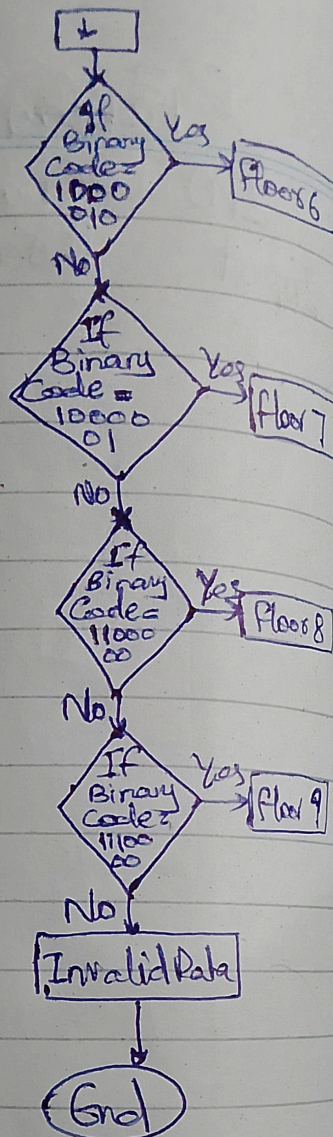 If
Binary
Code=
1000
010
Yes
Floor 6
No
If
Binary
Code =
10000
01
Yes
Floor 7
No
If
Binary
Code=
11000
00
Yes
Floor 8
No
If
Binary
Code=
11100
00
Yes
Floor 9
No
Invalid Data
End